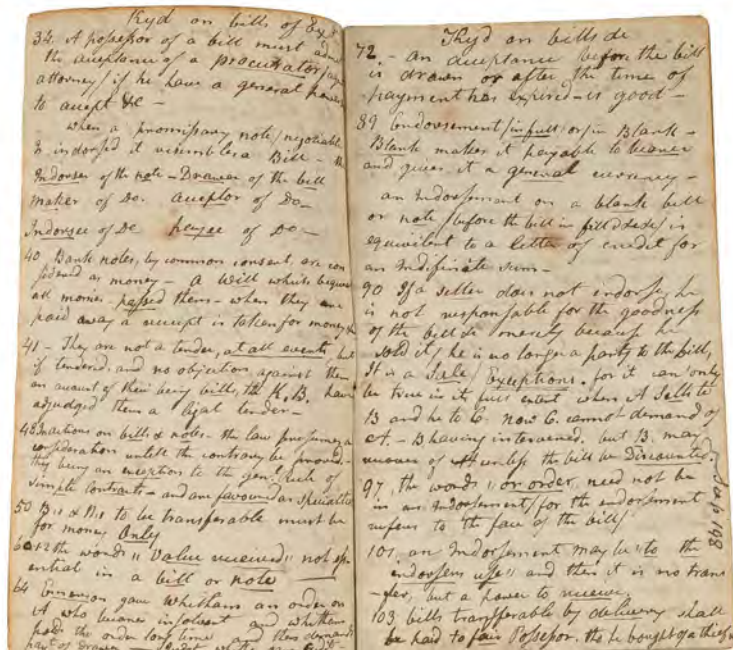 Kyd on bills of Ex
34. A possessor of a bill must admit
the acceptance of a procurator/
attorney/ if he have a general power
to accept &c –
When a promissary note/negotiable
is indorsed it resembles a Bill – the
Indorser of the note – Drawer of the bill
maker of Do. acceptor of Do –
Indorsee of Do payee of Do –
40 Bank notes, by common consent, are con
sidered as money – A Will which bequeas
all monies passed them – when they are
paid away a receipt is taken for money
41 – They are not a tender, at all events but
if tendered, and no objection against them
on account of their being bills, the K.B. have
adjudged them a legal tender –
48 In actions on bills & notes – the law presumes a
consideration untill the contrary be proved. –
they being an exception to the genl. rule of
simple contracts – and are favoured as specialties
50 B's & N's to be transferable must be
for money Only
the words "Value received" not es
ential in a bill or note
64 Ennerson gave Whitham an order on
A who became insolvent and Whitham
holds the order long time and then demands
of drawer
Kyd on bills &c
72. – an acceptance before the bill
is drawn or after the time of
payment has expired – is good –
89 Endorsement/in full/or/in Blank –
Blank makes it payable to bearer
and gives it a general currency –
an Indorsement on a blank bill
or note/before the bill is filled &c/is
equivilent to a letter of credit for
an Indifinate sum –
90 If a seller does not endorse, he
is not responsable for the goodness
of the bill &c merely because he
sold it/he is no longer a party to the bill,
It is a Sale/Exceptions. for it can only
be true in its full extent when A Sells to
B and he to C. now C. cannot demand of
A. – B having intervened. but B. may
recover of A unless the bill be Discounted.
97, the words "or order, need not be
in an Indorsement/for the endorsement
refers to the face of the bill/
101, an Indorsement may be "to the
endorsers use" and then it is no trans
–fer, but a power to receive.
103 bills transferable by delivery shall
be paid to fair Possessor. tho he bought of a thief